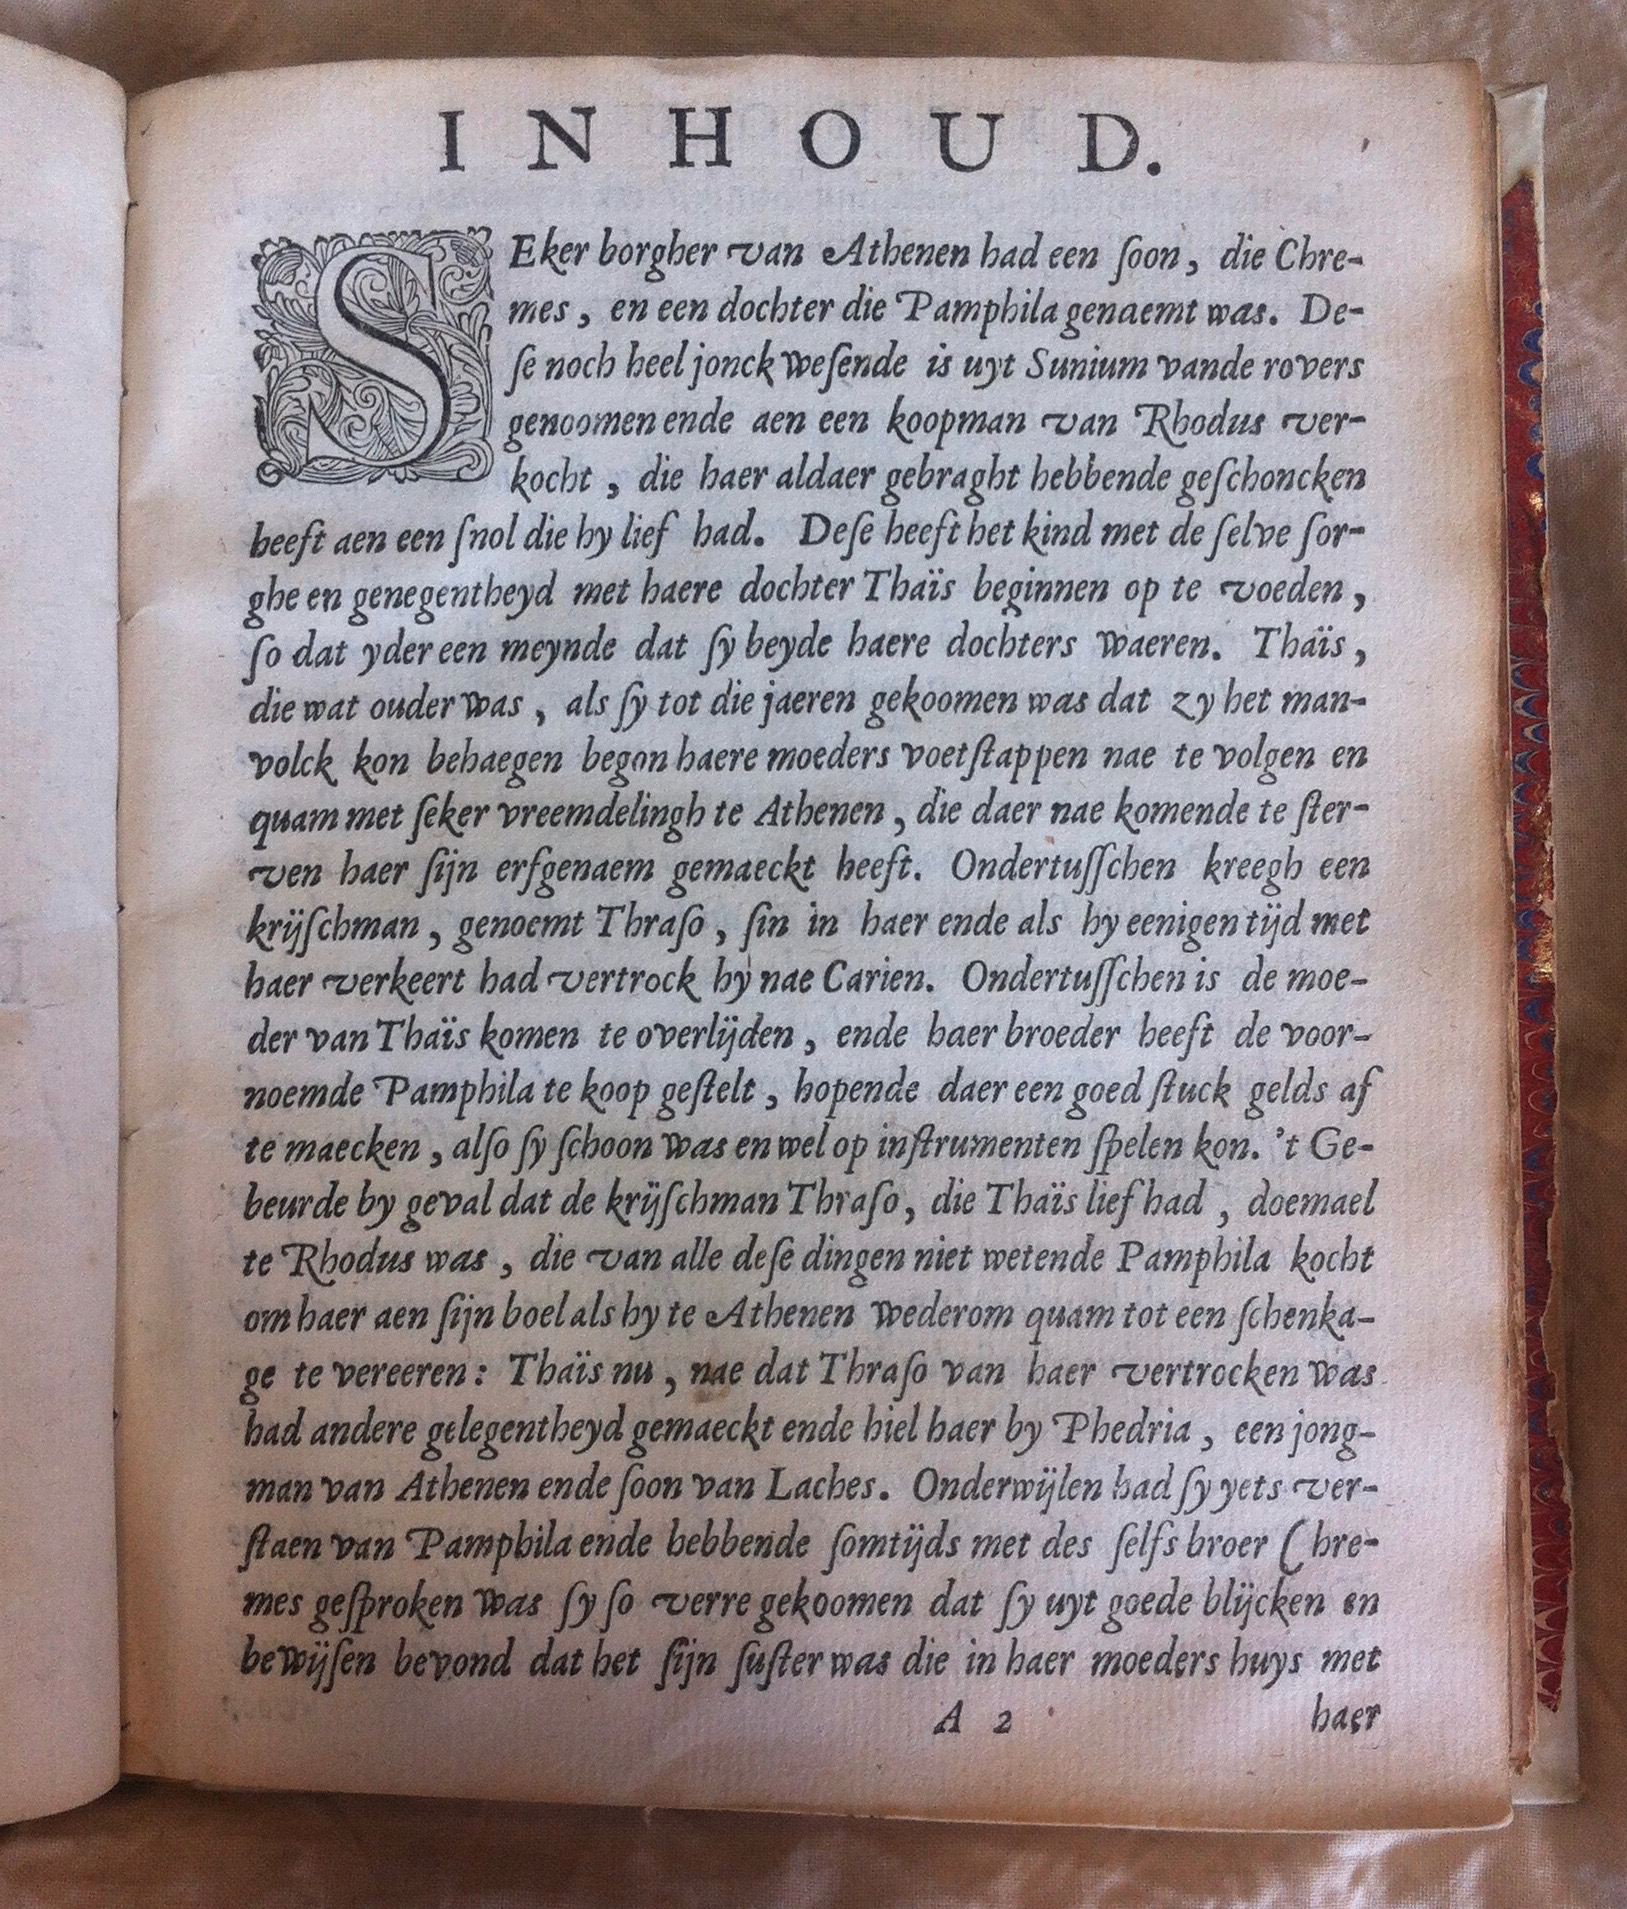 INHOUD.
SEker borgher van Athenen had een ſoon, die Chre-
mes, en een dochter die Pamphila genaemt was. De-
ſe noch heel jonck weſende is uyt Sunium vande rovers
genoomen ende aen een koopman van Rhodus ver-
kocht, die haer aldaer gebraght hebbende geſchoncken
heeft aen een ſnol die hy lief had. Deſe heeft het kind met de ſelve ſor-
ghe en genegentheyd met haere dochter Thaïs beginnen op te voeden,
ſo dat yder een meynde dat ſy beyde haere dochters waeren. Thaïs,
die wat ouder was, als ſy tot die jaeren gekoomen was dat zy het man-
volck kon behaegen begon haere moeders voetſtappen nae te volgen en
quam met ſeker vreemdelingh te Athenen, die daer nae komende te ſter-
ven haer ſijn erfgenaem gemaeckt heeft. Ondertuſſchen kreegh een
krijſchman, genoemt Thraſo, ſin in haer ende als hy eenigen tijd met
haer verkeert had vertrock hy nae Carien. Ondertuſſchen is de moe-
der van Thaïs komen te overlijden, ende haer broeder heeft de voor-
noemde Pamphila te koop geſtelt, hopende daer een goed ſtuck gelds af
te maecken, alſo ſy ſchoon was en wel op inſtrumenten ſpelen kon. 't Ge-
beurde by geval dat de krijſchman Thraſo, die Thaïs lief had, doemael
te Rhodus was, die van alle deſe dingen niet wetende Pamphila kocht
om haer aen ſijn boel als hy te Athenen wederom quam tot een ſchenka-
ge te vereeren: Thaïs nu, nae dat Thraſo van haer vertrocken was
had andere gelegentheyd gemaeckt ende hiel haer by Phedria, een jong-
man van Athenen ende ſoon van Laches. Onderwijlen had ſy yets ver-
ſtaen van Pamphila ende hebbende ſomtijds met des ſelfs broer Chre-
mes geſproken was ſy ſo verre gekoomen dat ſy uyt goede blijcken en
bewijſen bevond dat het ſijn ſuſter was die in haer moeders huys met
A 2 haer